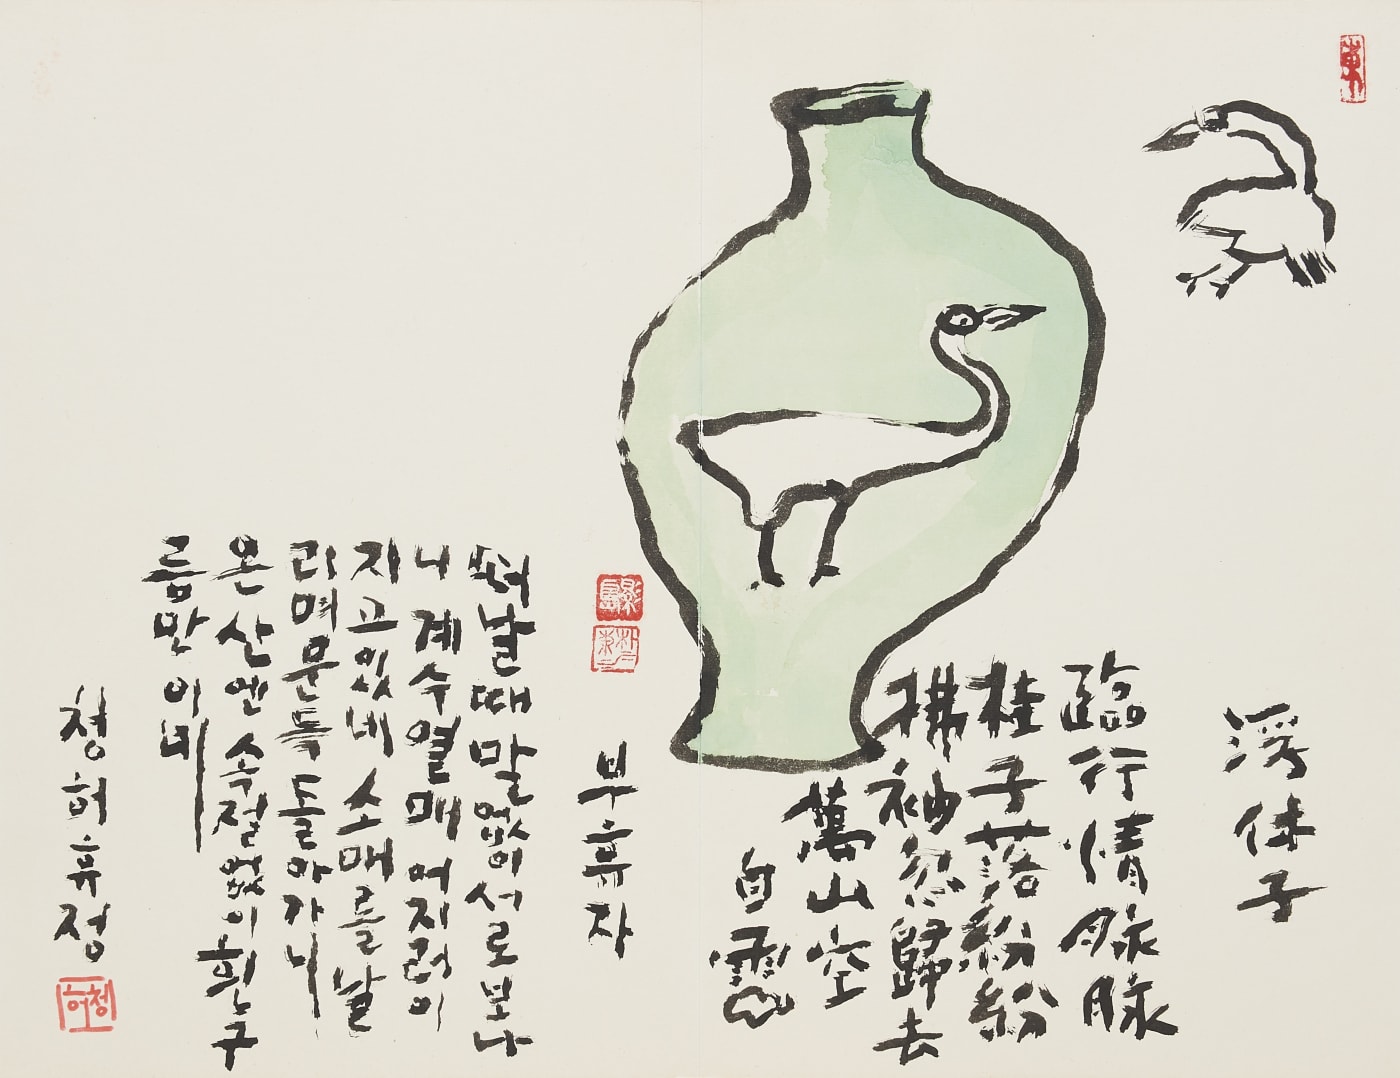 東
浮休子
臨行情脉脉
桂子落紛紛
拂袖忽歸去
萬山空
白雲
부휴자
떠날때 말없이 서로보나
니 계수열매 어지러이
지고있네 소매를 날
리며 문득 돌아가니
온산엔 속절없이 흰구
름만이네
청허휴정
청허